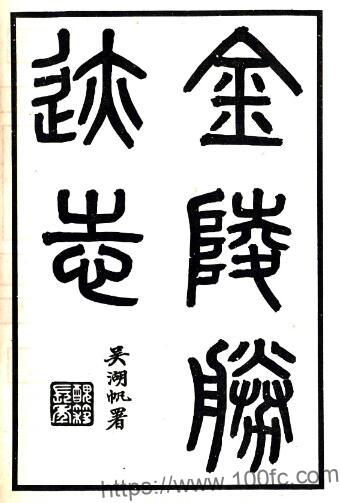 金陵勝
迹志
吳湖帆署
https://www.100fc.com